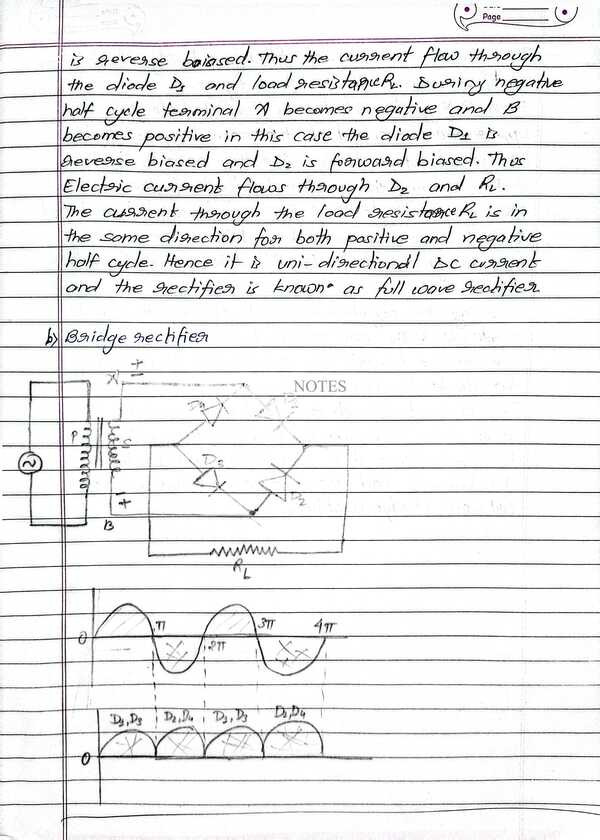 Page
is reverse baiased. Thus the current flow through
the diode D1 and load resistance RL. During negative
half cycle terminal A becomes negative and B
becomes positive in this case the diode D1 is
reverse biased and D2 is forward biased. Thus
Electric current flows through D2 and RL.
The current through the load resistance RL is in
the same direction for both positive and negative
half cycle. Hence it is uni-directional DC current
and the rectifier is known as full wave rectifier
b) Bridge rectifier
NOTES
P
S
D3
D2
B
RL
0
π
2π
3π
4π
D1,D3
D2,D4
D1,D3
D2,D4
0